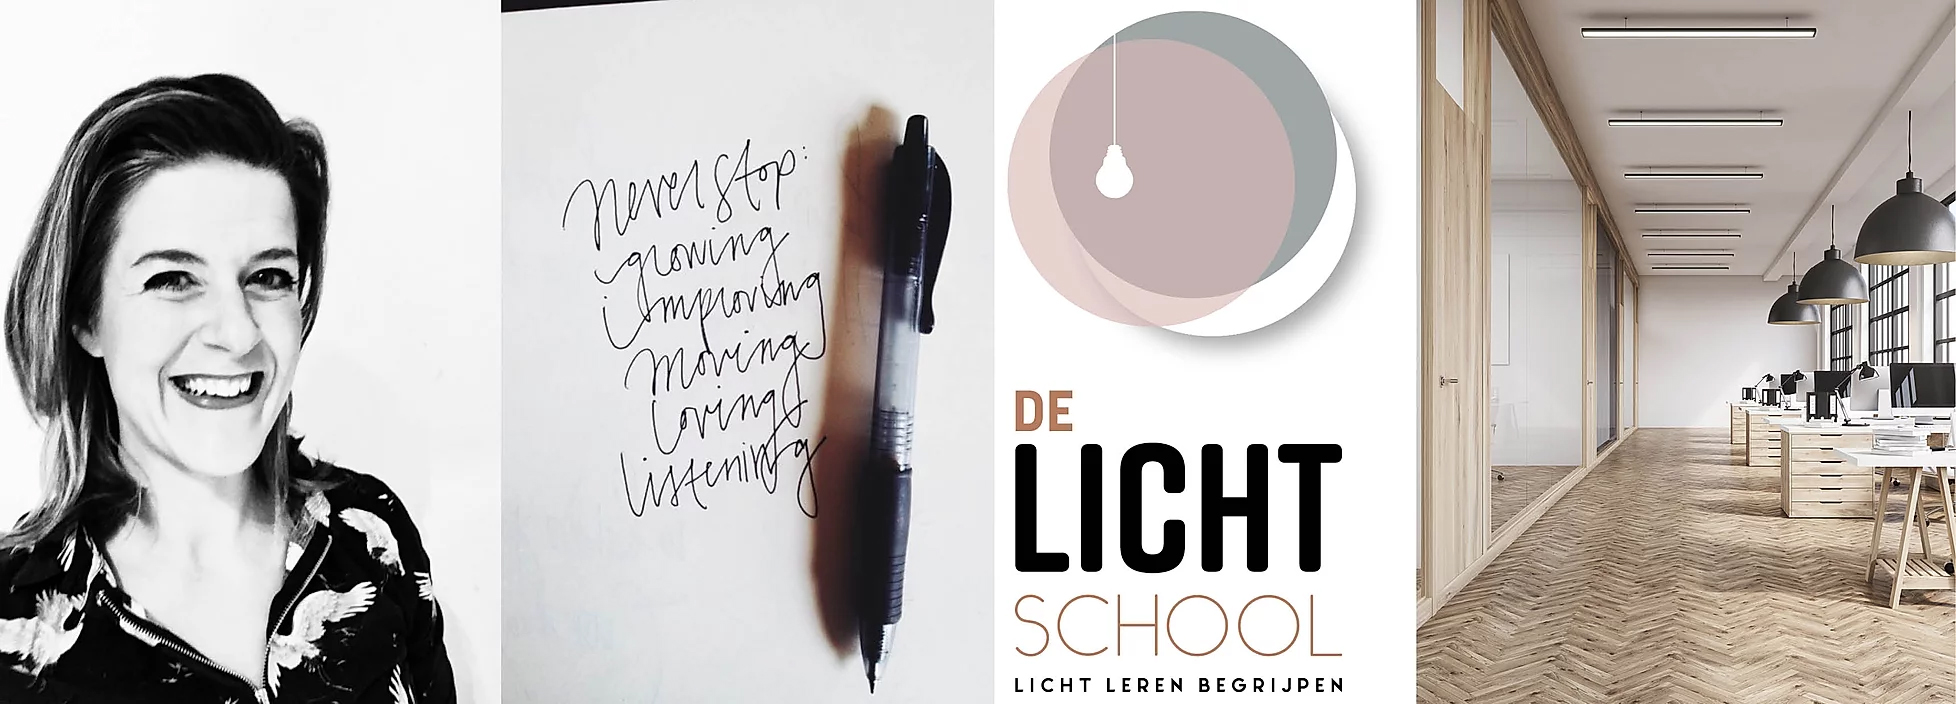 Never stop:
growing
improving
moving
loving
listening
DE
LICHT
SCHOOL
LICHT LEREN BEGRIJPEN